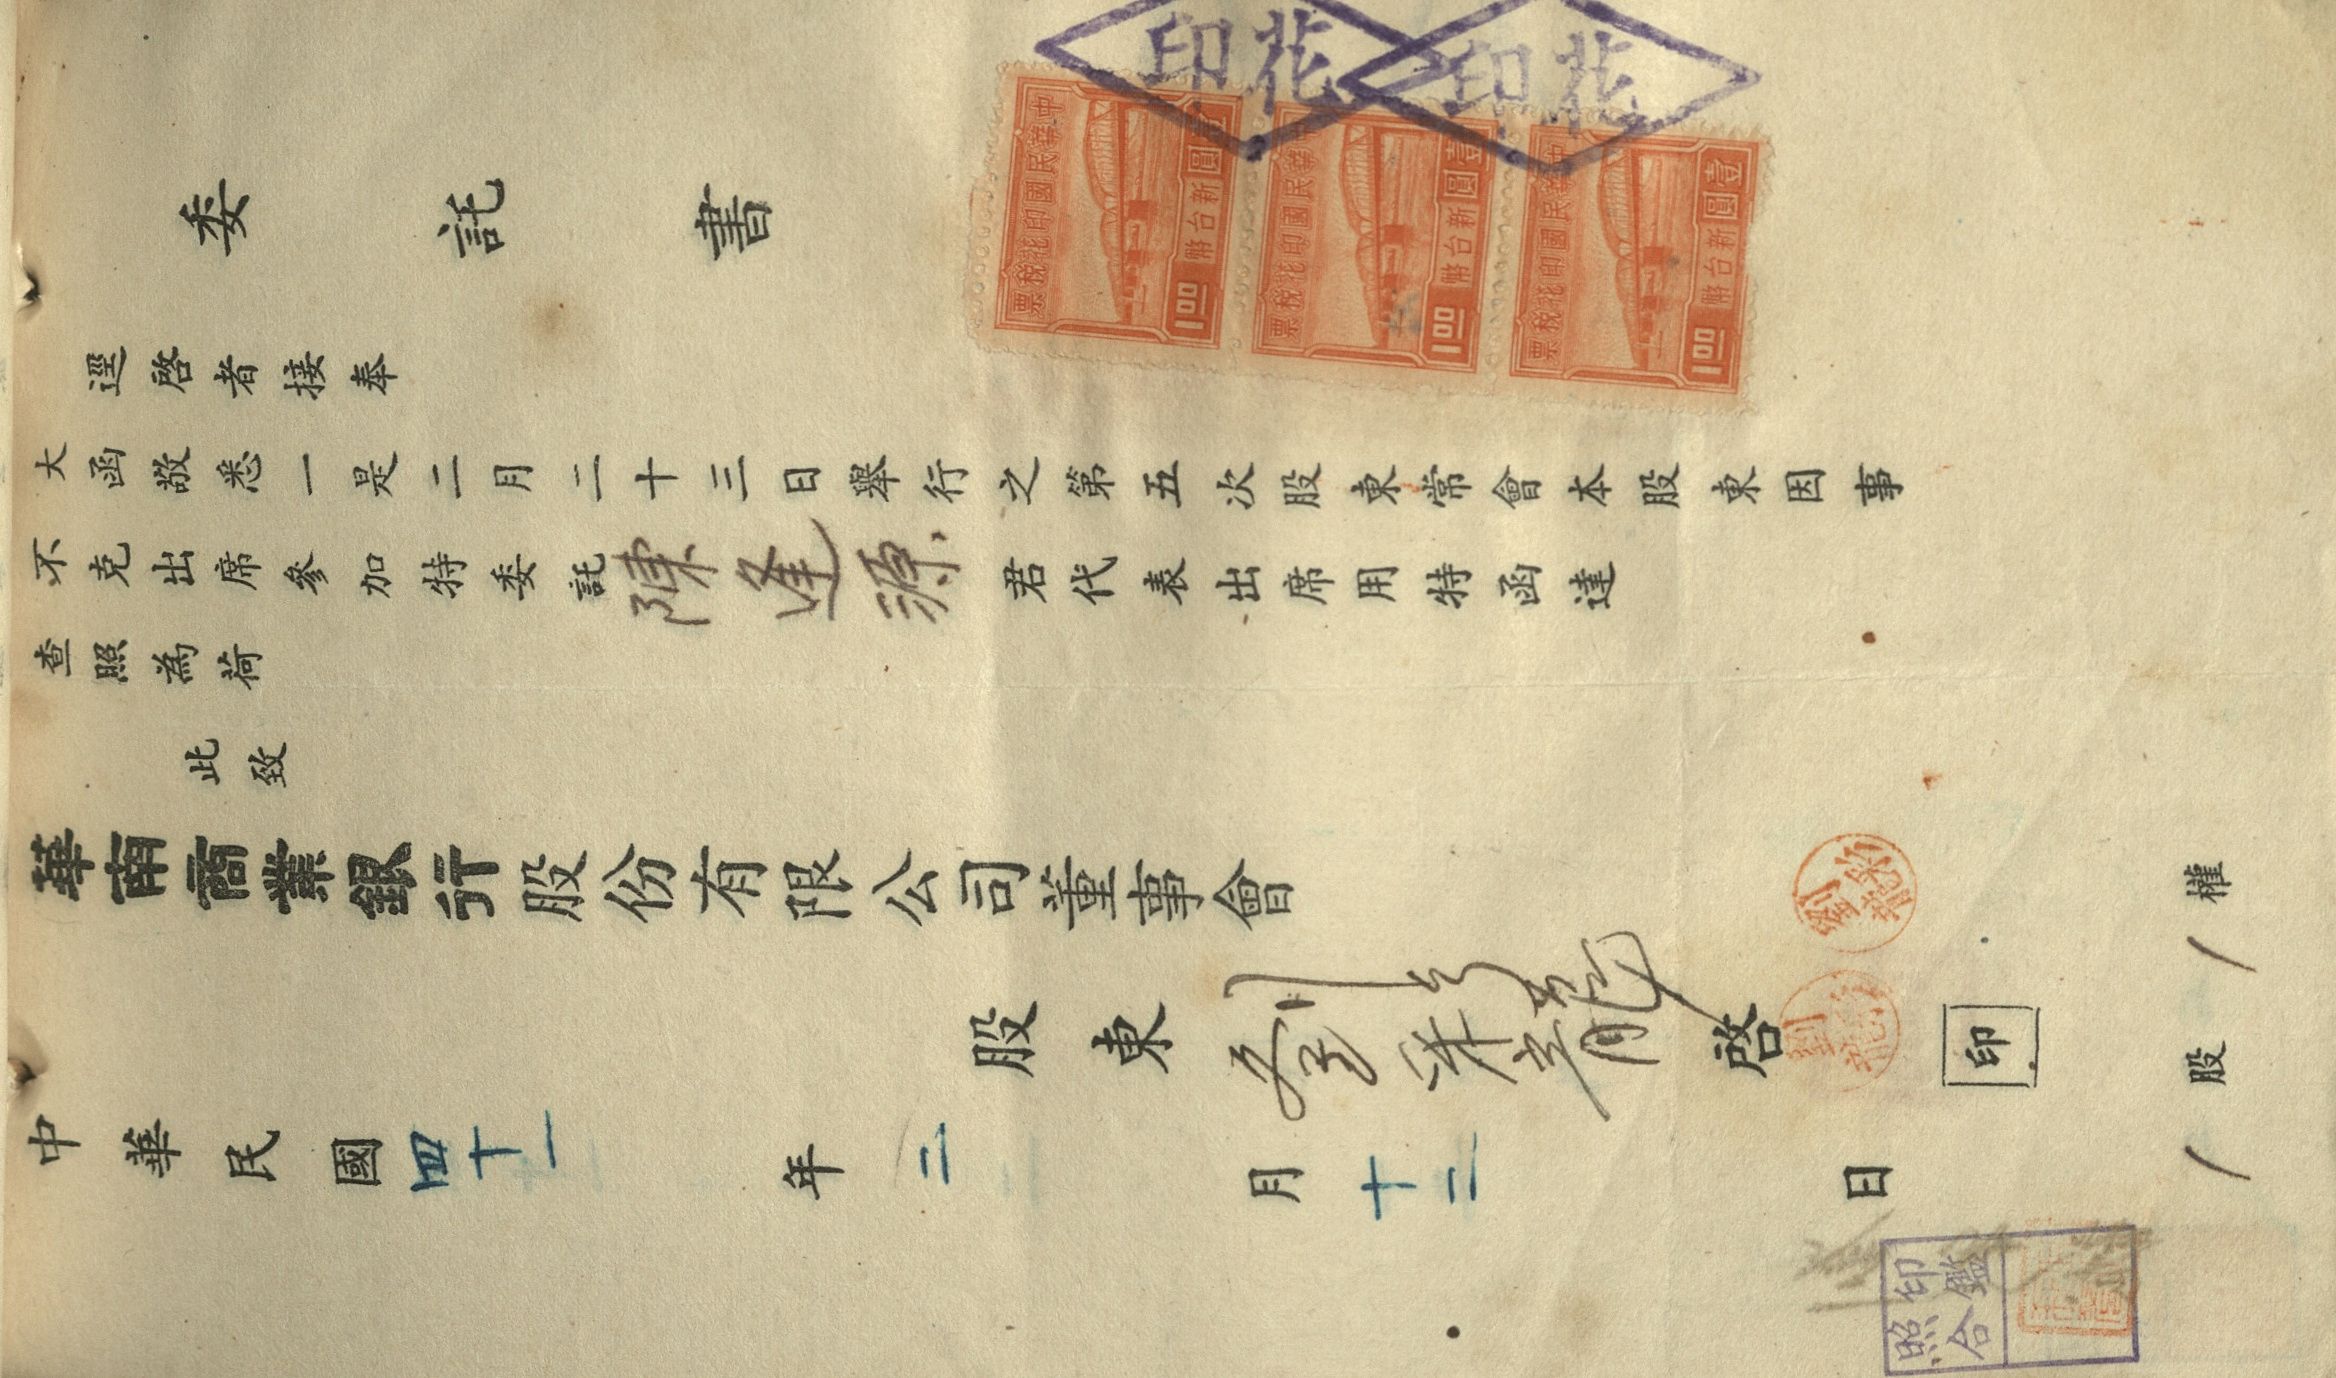 委託書
逕啓者接奉
大函敬悉一是二月二十三日舉行之第五次股東常會本股東因事
不克出席參加特委託陳逢源君代表出席用特函達
查照為荷
此致
華南商業銀行股份有限公司董事會
股東 劉 龍 啓 印
中華民國四十一年二月十二日
1股1權
花印
花印
中華民國印花稅票
壹圓
新台幣
1.00
中華民國印花稅票
壹圓
新台幣
1.00
中華民國印花稅票
壹圓
新台幣
1.00
印鑑
照合